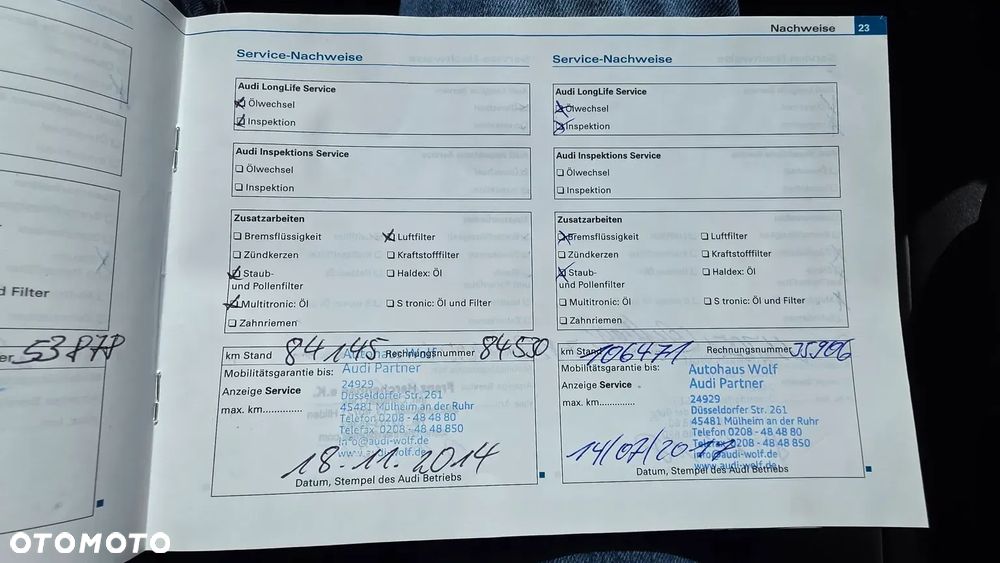 Nachweise 23
Service-Nachweise
Audi LongLife Service
Ölwechsel
Inspektion
Audi Inspektions Service
Ölwechsel
Inspektion
Zusatzarbeiten
Bremsflüssigkeit
Luftfilter
Zündkerzen
Kraftstofffilter
Staub-
und Pollenfilter
Haldex: Öl
Multitronic: Öl
S tronic: Öl und Filter
Zahnriemen
km Stand 84145 Rechnungsnummer 84530
Mobilitätsgarantie bis:
Anzeige Service
max. km..............
Autohaus Wolf
Audi Partner
24929
Düsseldorfer Str. 261
45481 Mülheim an der Ruhr
Telefon 0208 - 48 48 80
Telefax 0208 - 48 48 850
info@audi-wolf.de
www.audi-wolf.de
18.11.2014
Datum, Stempel des Audi Betriebs
Service-Nachweise
Audi LongLife Service
Ölwechsel
Inspektion
Audi Inspektions Service
Ölwechsel
Inspektion
Zusatzarbeiten
Bremsflüssigkeit
Luftfilter
Zündkerzen
Kraftstofffilter
Staub-
und Pollenfilter
Haldex: Öl
Multitronic: Öl
S tronic: Öl und Filter
Zahnriemen
km Stand 106471 Rechnungsnummer
Mobilitätsgarantie bis:
Anzeige Service
max. km..............
Autohaus Wolf
Audi Partner
24929
Düsseldorfer Str. 261
45481 Mülheim an der Ruhr
Telefon 0208 - 48 48 80
Telefax 0208 - 48 48 850
info@audi-wolf.de
www.audi-wolf.de
Datum, Stempel des Audi Betriebs
d Filter
53878
OTOMOTO